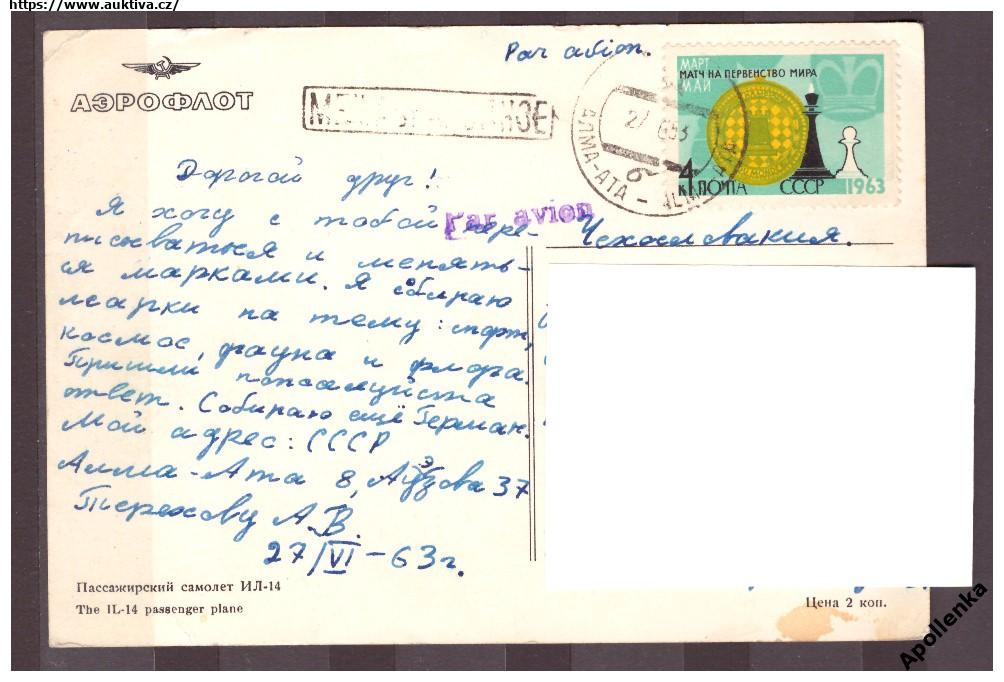 https://www.auktiva.cz/
Par avion.
АЭРОФЛОТ
МАРТ
МАТЧ НА ПЕРВЕНСТВО МИРА
МАЙ
АЛМА-АТА
4
к ПОЧТА СССР 1963
Par avion
Дорогой друг!
Я хочу с тобой пере-
писываться и менять-
ся марками. Я собираю
марки на тему: спорт,
космос, фауна и флора.
Пришли пожалуйста
ответ. Собираю ещё Герман.
Мой адрес: СССР
Алма-Ата 8, 37
Терехову А.В.
27/VI-63г.
Чехословакия.
Пассажирский самолет ИЛ-14
The IL-14 passenger plane
Цена 2 коп.
Apollenka